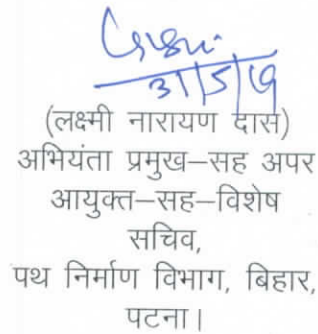 31/5/19
(लक्ष्मी नारायण दास)
अभियंता प्रमुख–सह अपर
आयुक्त–सह–विशेष
सचिव,
पथ निर्माण विभाग, बिहार,
पटना।